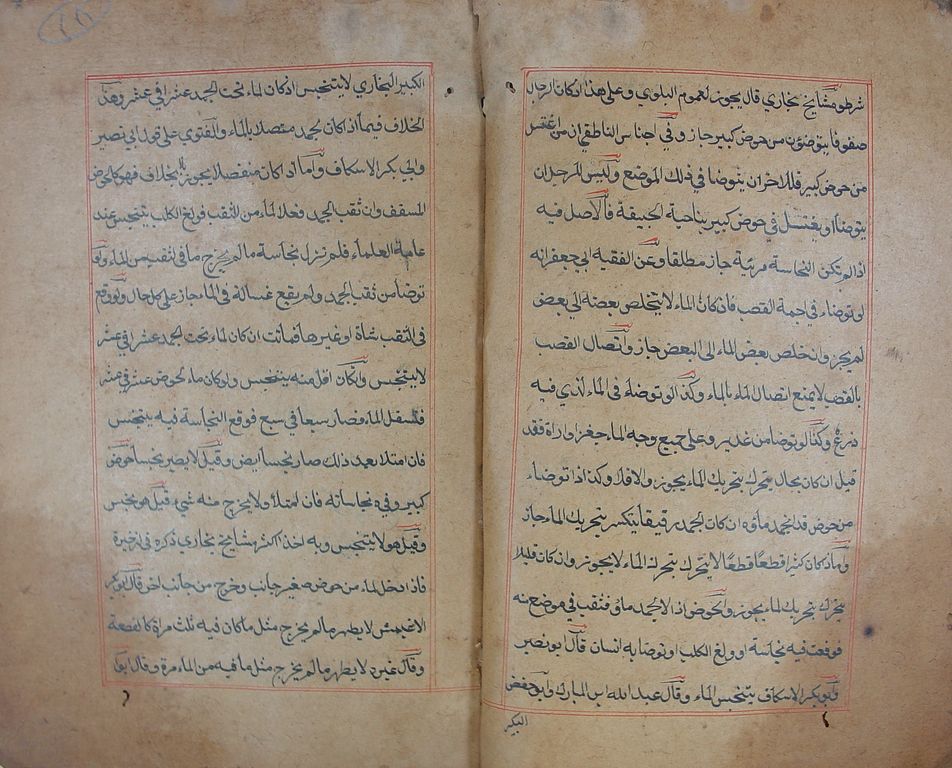 شرطه ومشايخ بخاري قال يجوز لعموم البلوي وعلى هذا اذا كان الرجال
صفوفا يتوضؤن من حوض كبير جاز وفي اجناس الناطقي ان من اغتسل
من حوض كبير فللاخر ان يتوضا في ذلك الموضع وليس للرجل ان
يتوضا او يغتسل في حوض كبير بناحية الجيفة فالاصل فيه
اذا لم تكن النجاسة مرئية جاز مطلقا وعن الفقيه ابي جعفر انه
لو توضاء في اجمة القصب فان كان الماء لا يتخلص بعضه الى بعض
لم يجز وان تخلص بعض الماء الى البعض جاز واتصال القصب
بالقصب لا يمنع اتصال الماء بالماء وكذا لو توضاء في الماء الذي فيه
زرع وكذا لو توضا من غدير وعلى جميع وجه الماء فقد
قيل ان كان بحال يتحرك بتحريك الماء يجوز والا فلا وكذا اذا توضاء
من حوض قد انجمد ماؤه ان كان الجمد رقيقا ينكسر بتحريك الماء جاز
واما اذا كان كثيرا قطعا قطعا لا يتحرك بتحرك الماء لا يجوز وان كان قليلا
يتحرك بتحريك الماء يجوز والحوض اذا انجمد ماؤه فنقب في موضع منه
فوقعت فيه نجاسة او ولغ الكلب او توضا به انسان قال ابو نصير
وابو بكر الاسكاف يتنجس الماء وقال عبد الله ابن المبارك وابو حفص
الكبير
الكبير البخاري لا يتنجس اذ كان الماء تحت الجمد عشرا في عشر وهذا
الخلاف فيما اذا كان الجمد متصلا بالماء والفتوي على قول ابي نصير
وابي بكر الاسكاف واما اذا كان منفصلا يجوز بلا خلاف فهو كالحوض
المسقف وان ثقب الجمد فعلا الماء من الثقب فولغ الكلب يتنجس عند
عامة العلماء فلم تزل نجاسة ما لم يخرج ما في الثقب من الماء ولو
توضا من ثقب الجمد ولم يقع غسالته في الماء جاز على كل حال ولو وقع
في الثقب شاة او غيرها فماتت ان كان الماء تحت الجمد عشرا في عشر
لا يتنجس وان كان اقل منه يتنجس ولو كان ماء الحوض عشر في عشر
فتسفل الماء فصار سبعا في سبع فوقع النجاسة فيه يتنجس
فان امتلا بعد ذلك صار نجسا ايضا وقيل لا يصير نجسا حوض
كبير وفيه نجاسات فان امتلاء ولا يخرج منه شيء قيل هو نجس
وقيل هو لا يتنجس وبه اخذ اكثر مشايخ بخاري ذكره في الذخيرة
فاذا دخل الماء من حوض صغير جانب وخرج من جانب اخر قال ابو بكر
الاعمش لا يطهر ما لم يخرج مثل ما كان فيه ثلث مرة كالقصعة
وقال غيره لا يطهر ما لم يخرج مثل ما فيه من الماء مرة وقال ابو